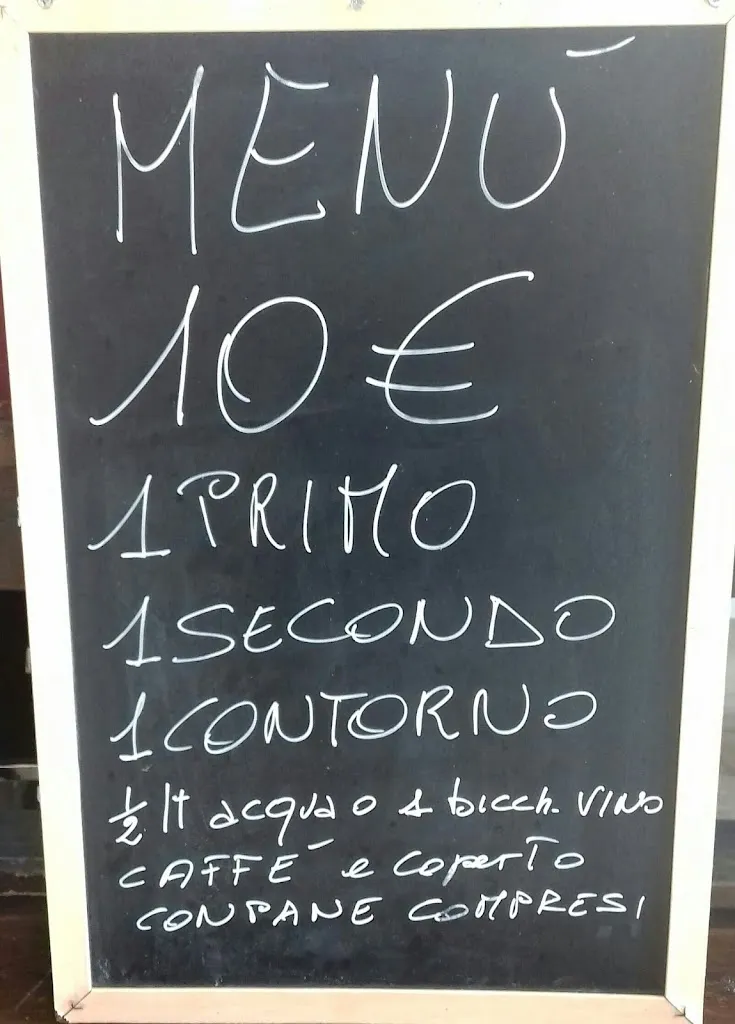 MENÙ
10 €
1 PRIMO
1 SECONDO
1 CONTORNO
½ lt acqua o 1 bicch. VINO
CAFFÈ e coperto
CON PANE COMPRESI